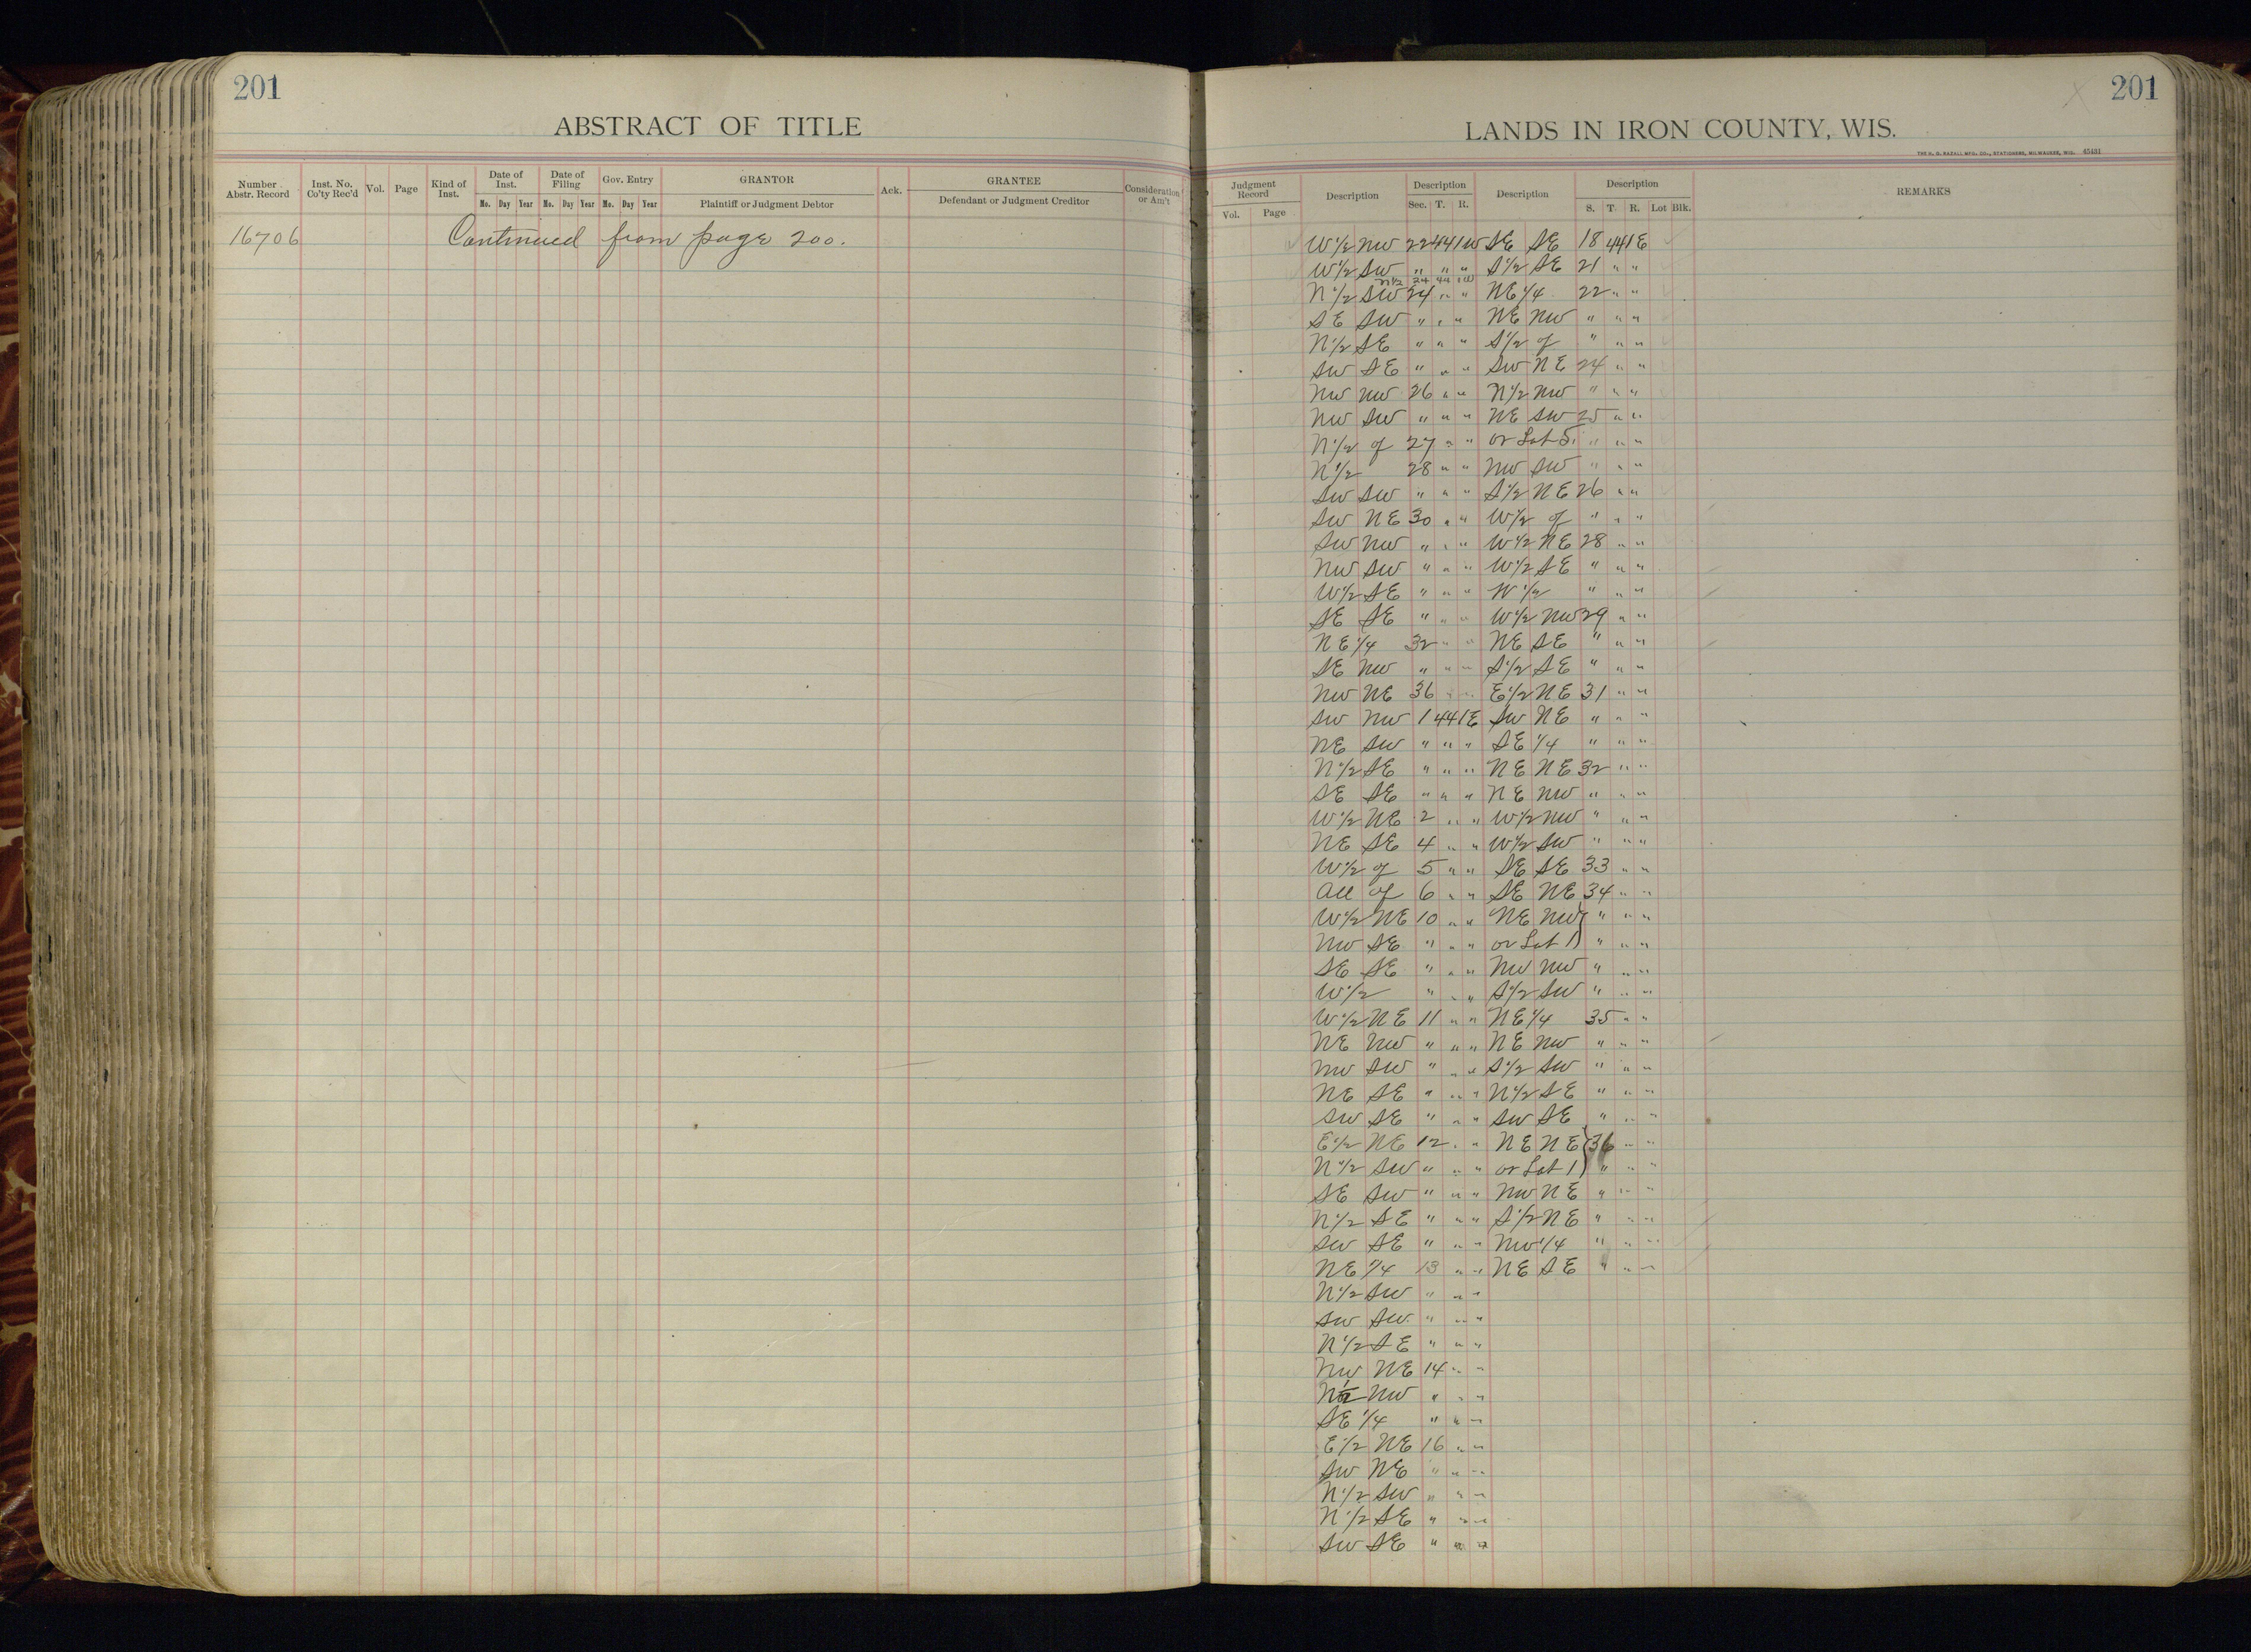 201
ABSTRACT OF TITLE
Number Abstr. Record Inst. No. Co'ty Rec'd Vol. Page Kind of Inst. Date of Inst. Date of Filing Gov. Entry GRANTOR Ack. GRANTEE Consideration or Am't
Mo. Day Year Mo. Day Year Mo. Day Year Plaintiff or Judgment Debtor Defendant or Judgment Creditor
16706 Continued from page 200.
201
LANDS IN IRON COUNTY, WIS.
THE H. G. RAZALL MFG. CO., STATIONERS, MILWAUKEE, WIS. 45431
Judgment Record Description Description Description Description REMARKS
Vol. Page Sec. T. R. S. T. R. Lot Blk.
W 1/2 NW 22 44 1W SE SE 18 44 1E
W 1/2 SW " " " S 1/2 SE 21 " "
N 1/2 24 44 1W
N 1/2 SW 24 " " NE 1/4 22 " "
SE SW " " " NE NW " " "
N 1/2 SE " " " S 1/2 of " " "
SW SE " " " SW NE 24 " "
NW NW 26 " " N 1/2 NW " " "
NW SW " " " NE SW 25 " "
N 1/2 of 27 " " or Lot 5. " " "
N 1/2 28 " " NW SW " " "
SW SW " " " S 1/2 NE 26 " "
SW NE 30 " " W 1/2 of " " "
SW NW " " " W 1/2 NE 28 " "
NW SW " " " W 1/2 SE " " "
W 1/2 SE " " " W 1/2 " " "
SE SE " " " W 1/2 NW 29 " "
NE 1/4 32 " " NE SE " " "
SE NW " " " S 1/2 SE " " "
NW NE 36 " " E 1/2 NE 31 " "
SW NW 1 44 1E SW NE " " "
NE SW " " " SE 1/4 " " "
N 1/2 SE " " " NE NE 32 " "
SE SE " " " NE NW " " "
W 1/2 NE 2 " " W 1/2 NW " " "
NE SE 4 " " W 1/2 SW " " "
W 1/2 of 5 " " SE SE 33 " "
All of 6 " " SE NE 34 " "
W 1/2 NE 10 " " NE NW } " " "
NW SE " " " or Lot 1 } " " "
SE SE " " " NW NW " " "
W 1/2 " " " S 1/2 SW " " "
W 1/2 NE 11 " " NE 1/4 35 " "
NE NW " " " NE NW " " "
NW SW " " " S 1/2 SW " " "
NE SE " " " N 1/2 SE " " "
SW SE " " " SW SE " " "
E 1/2 NE 12 " " NE NE } 36 " "
N 1/2 SW " " " or Lot 1 } " " "
SE SW " " " NW NE " " "
N 1/2 SE " " " S 1/2 NE " " "
SW SE " " " NW 1/4 " " "
NE 1/4 13 " " NE SE " " "
N 1/2 SW " " "
SW SW " " "
N 1/2 SE " " "
NW NE 14 " "
N 1/2 NW " " "
SE 1/4 " " "
E 1/2 NE 16 " "
SW NE " " "
N 1/2 SW " " "
N 1/2 SE " " "
SW SE " " "